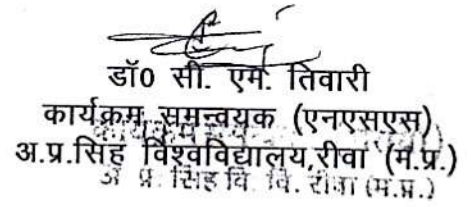 डॉ0 सी. एम. तिवारी
कार्यक्रम समन्वयक (एनएसएस)
अ.प्र.सिंह विश्वविद्यालय,रीवा (म.प्र.)
अ. प्र. सिंह वि. वि. रीवा (म.प्र.)